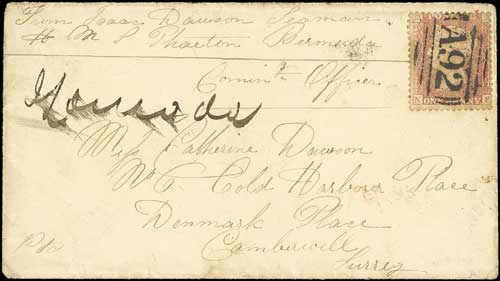 From Isaac Dawson Seaman
H M S Phaeton Bermuda
A92
Comm'g Officer
Miss Catherine Dawson
No 6 Cold Harbour Place
Denmark Place
Camberwell
Surrey